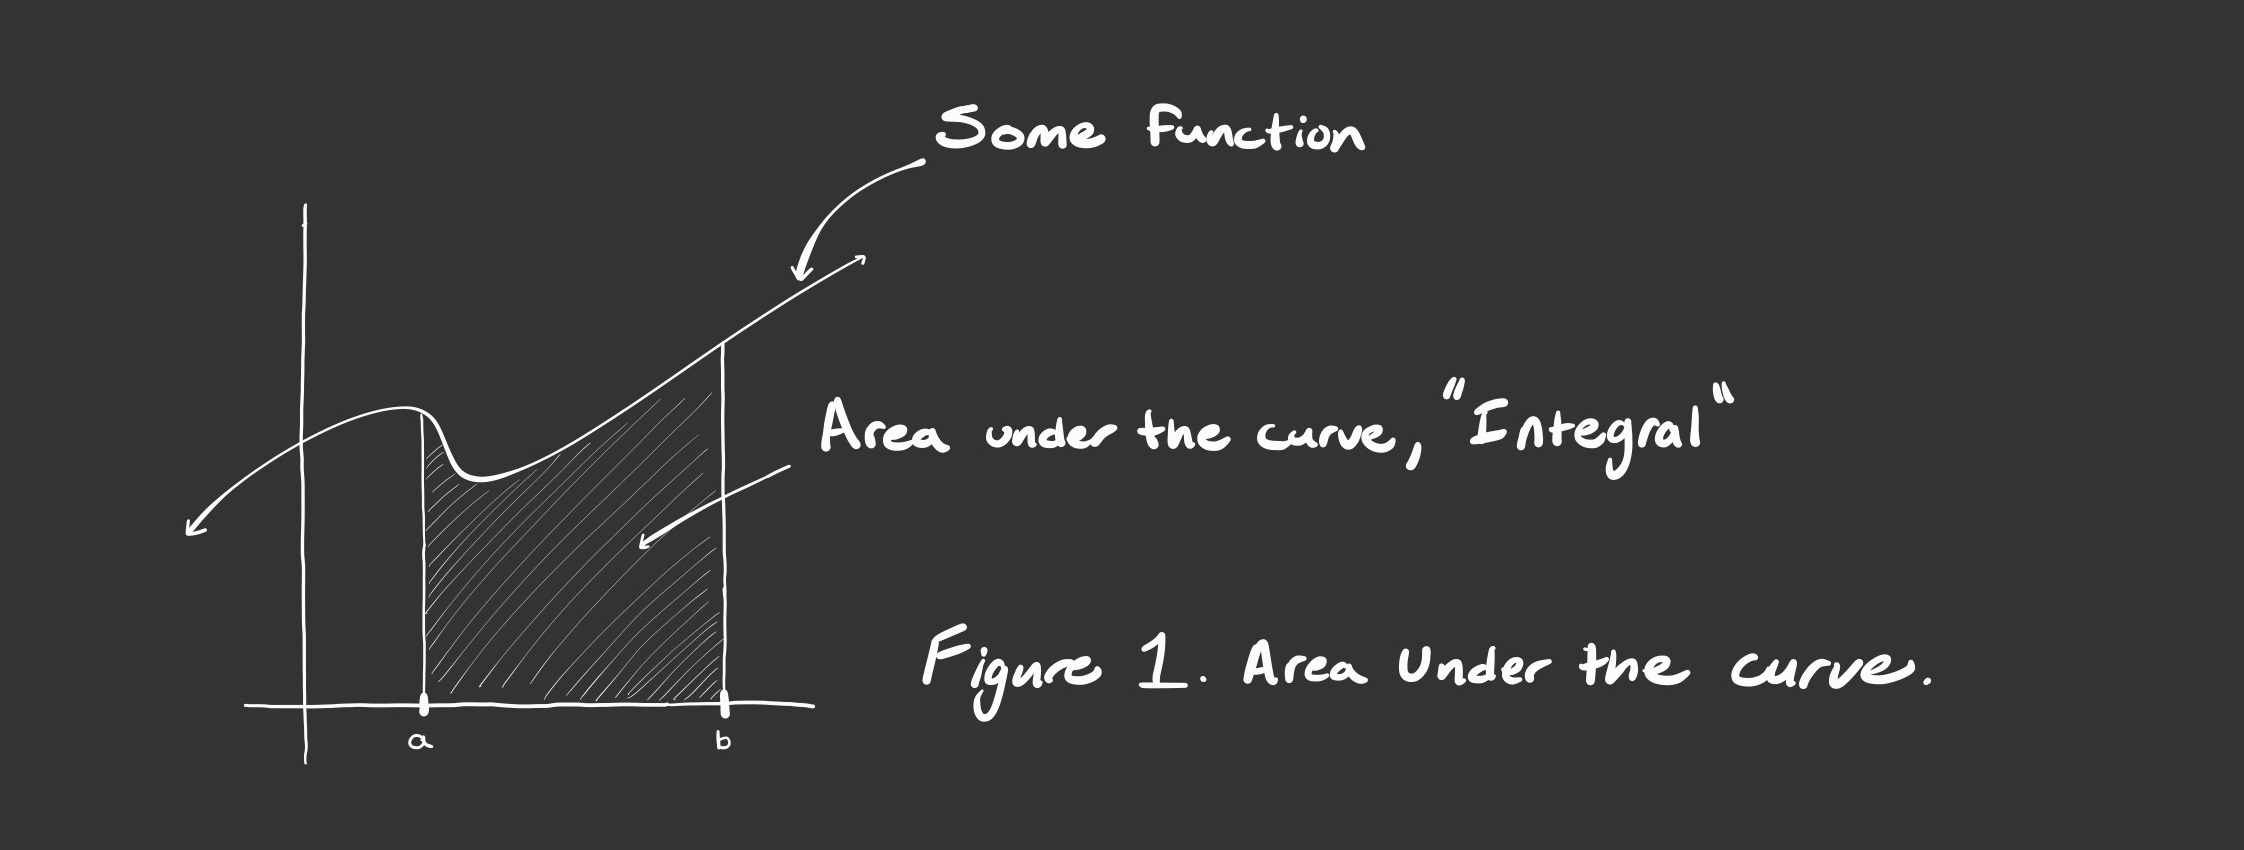 Some function
Area under the curve, "Integral"
a
b
Figure 1. Area Under the curve.